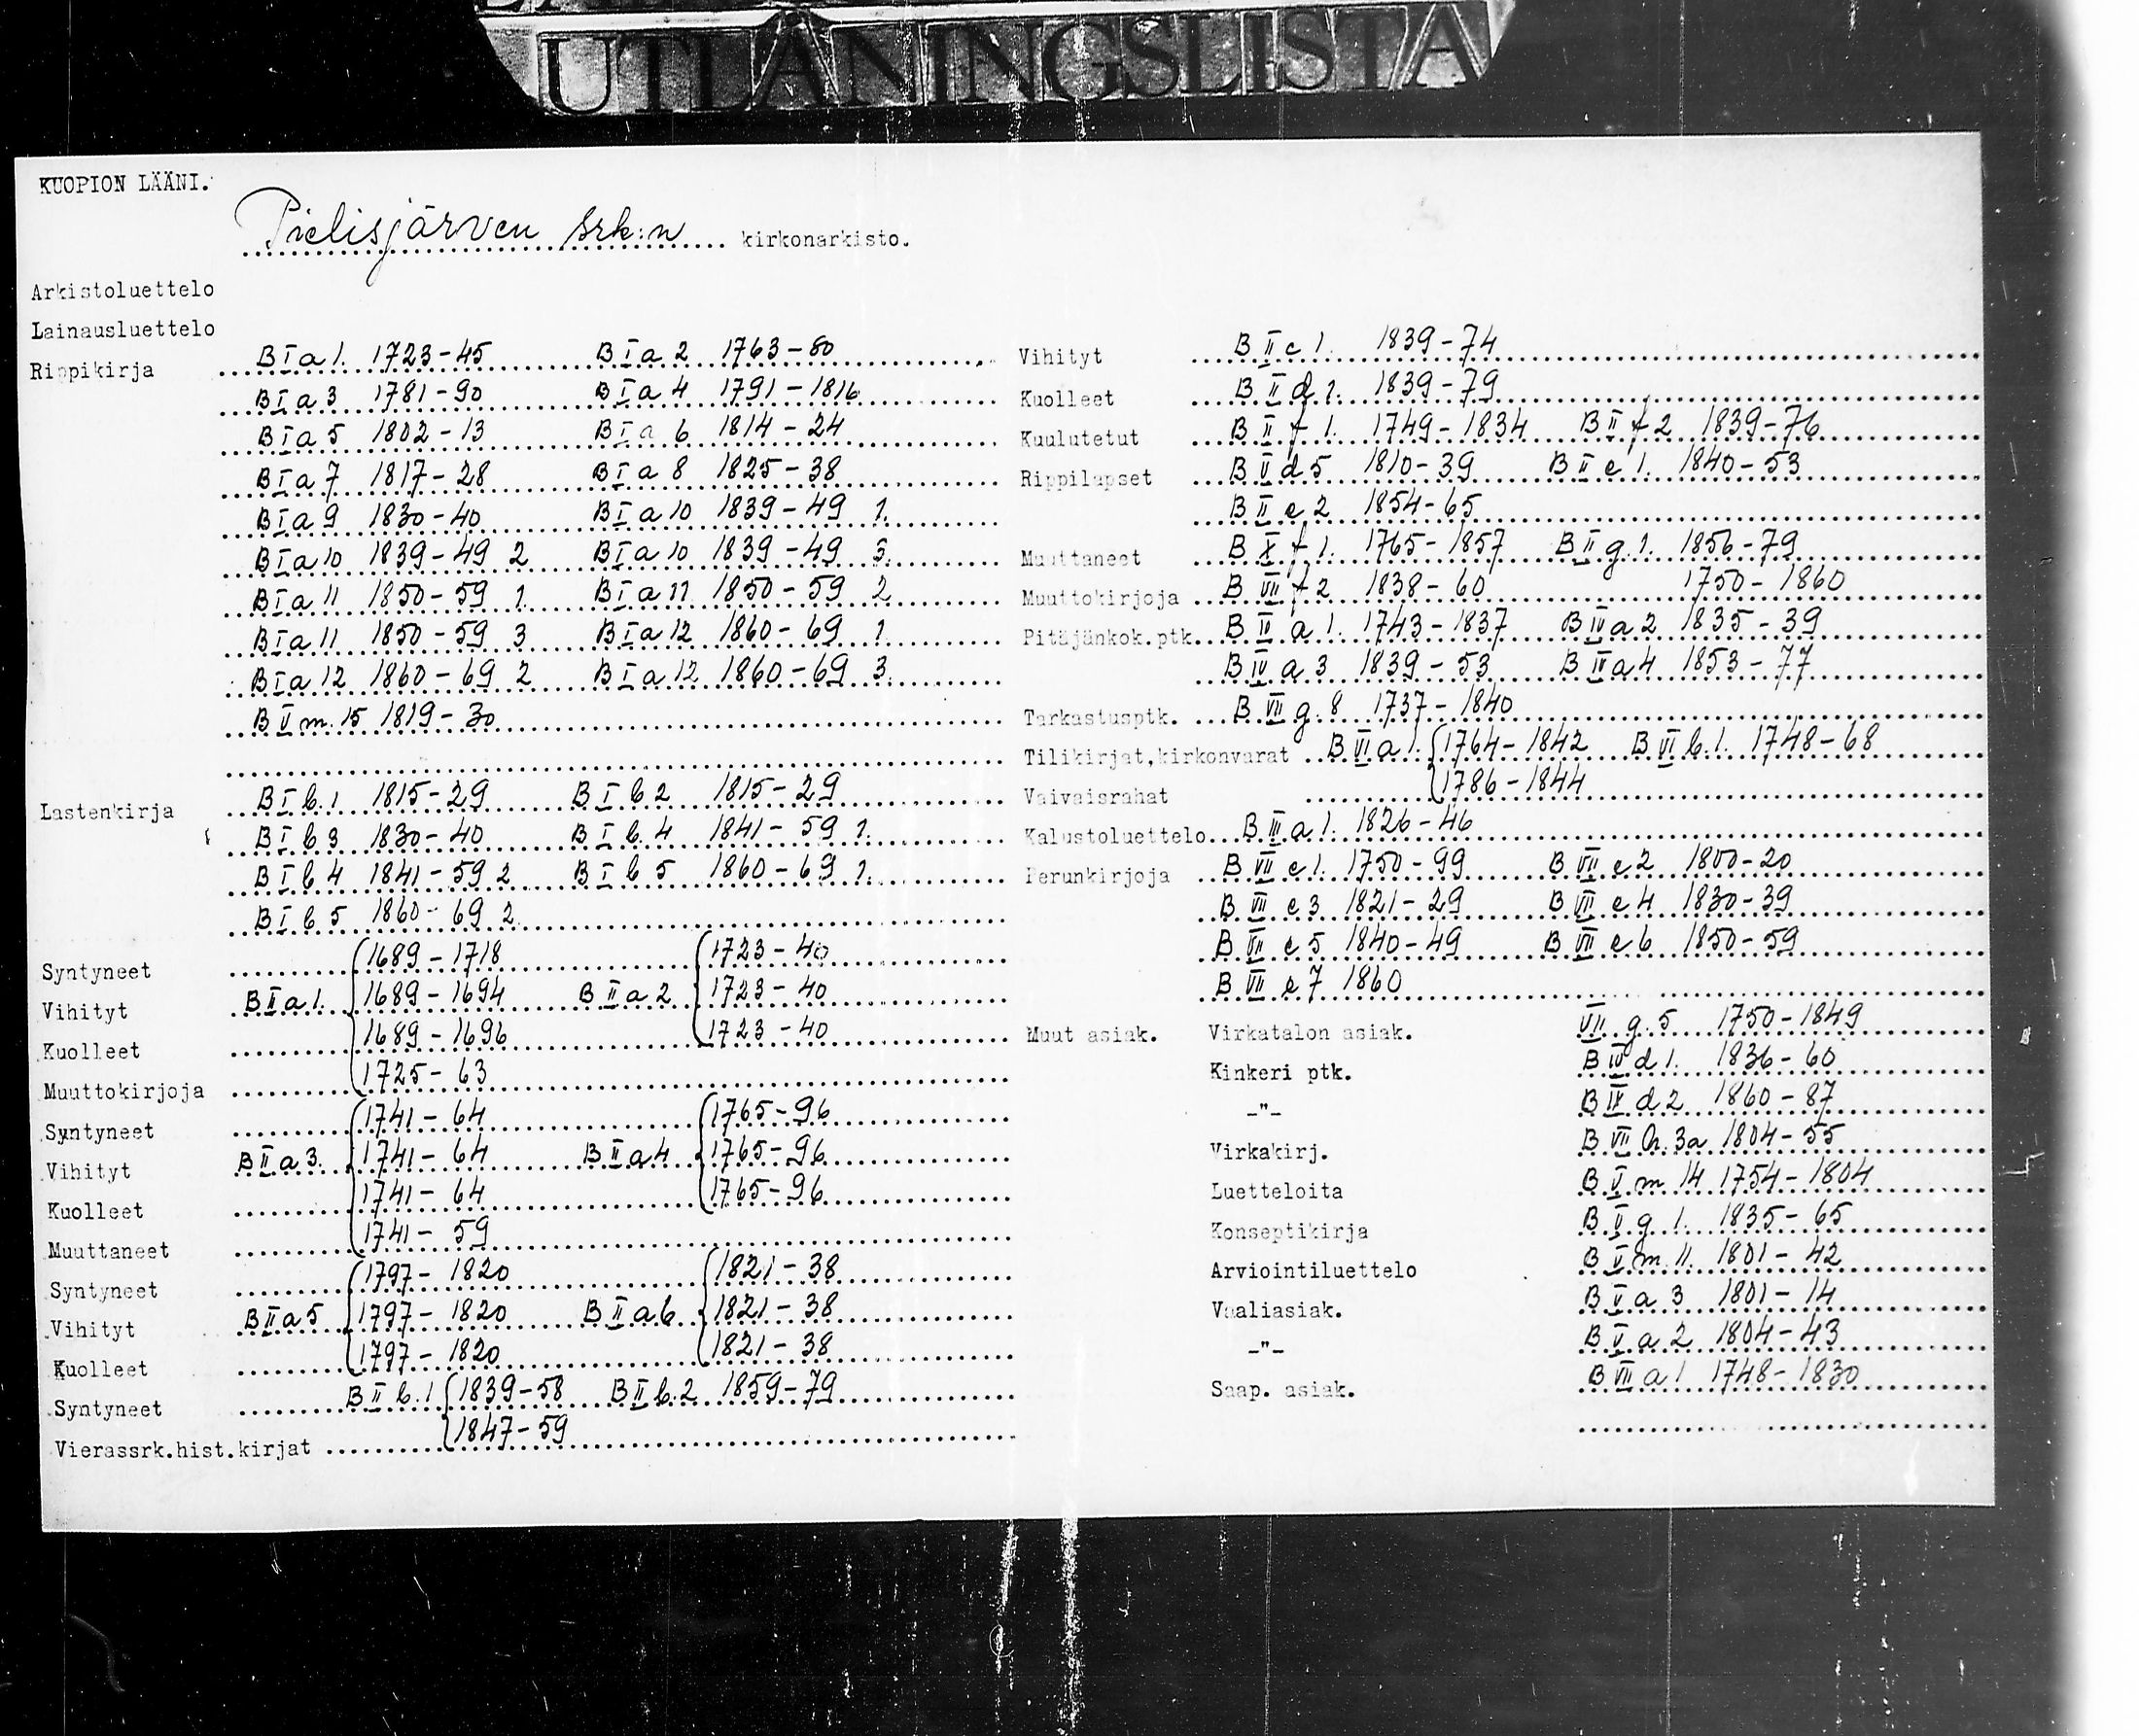 UTLÅNINGSLISTA
KUOPION LÄÄNI.
Pielisjärven srk:n kirkonarkisto.
Arkistoluettelo
Lainausluettelo
Rippikirja B I a 1. 1723-45 B I a 2 1763-80
B I a 3 1781-90 B I a 4 1791-1816
B I a 5 1802-13 B I a 6 1814-24
B I a 7 1817-28 B I a 8 1825-38
B I a 9 1830-40 B I a 10 1839-49 1.
B I a 10 1839-49 2 B I a 10 1839-49 3.
B I a 11 1850-59 1. B I a 11 1850-59 2
B I a 11 1850-59 3 B I a 12 1860-69 1.
B I a 12 1860-69 2 B I a 12 1860-69 3.
B V m. 15 1819-30
Lastenkirja B I b. 1 1815-29 B I b 2 1815-29
B I b 3 1830-40 B I b. 4 1841-59 1.
B I b 4 1841-59 2 B I b 5 1860-69 1.
B I b 5 1860-69 2.
Syntyneet 1689-1718 1723-40
Vihityt B II a 1. 1689-1694 B II a 2 1723-40
Kuolleet 1689-1696 1723-40
Muuttokirjoja 1725-63
Syntyneet 1741-64 1765-96
Vihityt B II a 3. 1741-64 B II a 4 1765-96
Kuolleet 1741-64 1765-96
Muuttaneet 1741-59
Syntyneet 1797-1820 1821-38
Vihityt B II a 5 1797-1820 B II a 6 1821-38
Kuolleet 1797-1820 1821-38
Syntyneet B II b. 1 1839-58 B II b. 2 1859-79
Vierassrk.hist.kirjat 1847-59
Vihityt B II c 1. 1839-74
Kuolleet B II d 1. 1839-79
Kuulutetut B II f 1. 1749-1834 B II f 2 1839-76
Rippilapset B V d 5 1810-39 B II e 1. 1840-53
B II e 2 1854-65
Muuttaneet B X f 1. 1765-1857 B II g. 1. 1856-79
Muuttokirjoja B VII f 2 1838-60 1750-1860
Pitäjänkok.ptk. B IV a 1. 1743-1837 B IV a 2 1835-39
B IV a 3 1839-53 B IV a 4 1853-77
Tarkastusptk. B VII g. 8 1737-1840
Tilikirjat, kirkonvarat B VI a 1. 1764-1842 B VI b. 1. 1748-68
Vaivaisrahat 1786-1844
Kalustoluettelo B III a 1. 1826-46
Perunkirjoja B VII e 1. 1750-99 B VII e 2 1800-20
B VII e 3 1821-29 B VII e 4 1830-39
B VII e 5 1840-49 B VII e 6 1850-59
B VII e 7 1860
Muut asiak. Virkatalon asiak. VII g. 5 1750-1849
Kinkeri ptk. B IV d 1. 1836-60
-"- B IV d 2 1860-87
Virkakirj. B VII h. 3a 1804-55
Luetteloita B V m 14 1754-1804
Konseptikirja B V g 1. 1835-65
Arviointiluettelo B V m. 11. 1801-42
Vaaliasiak. B V a 3 1801-14
-"- B V a 2 1804-43
Saap. asiak. B VII a 1 1748-1830